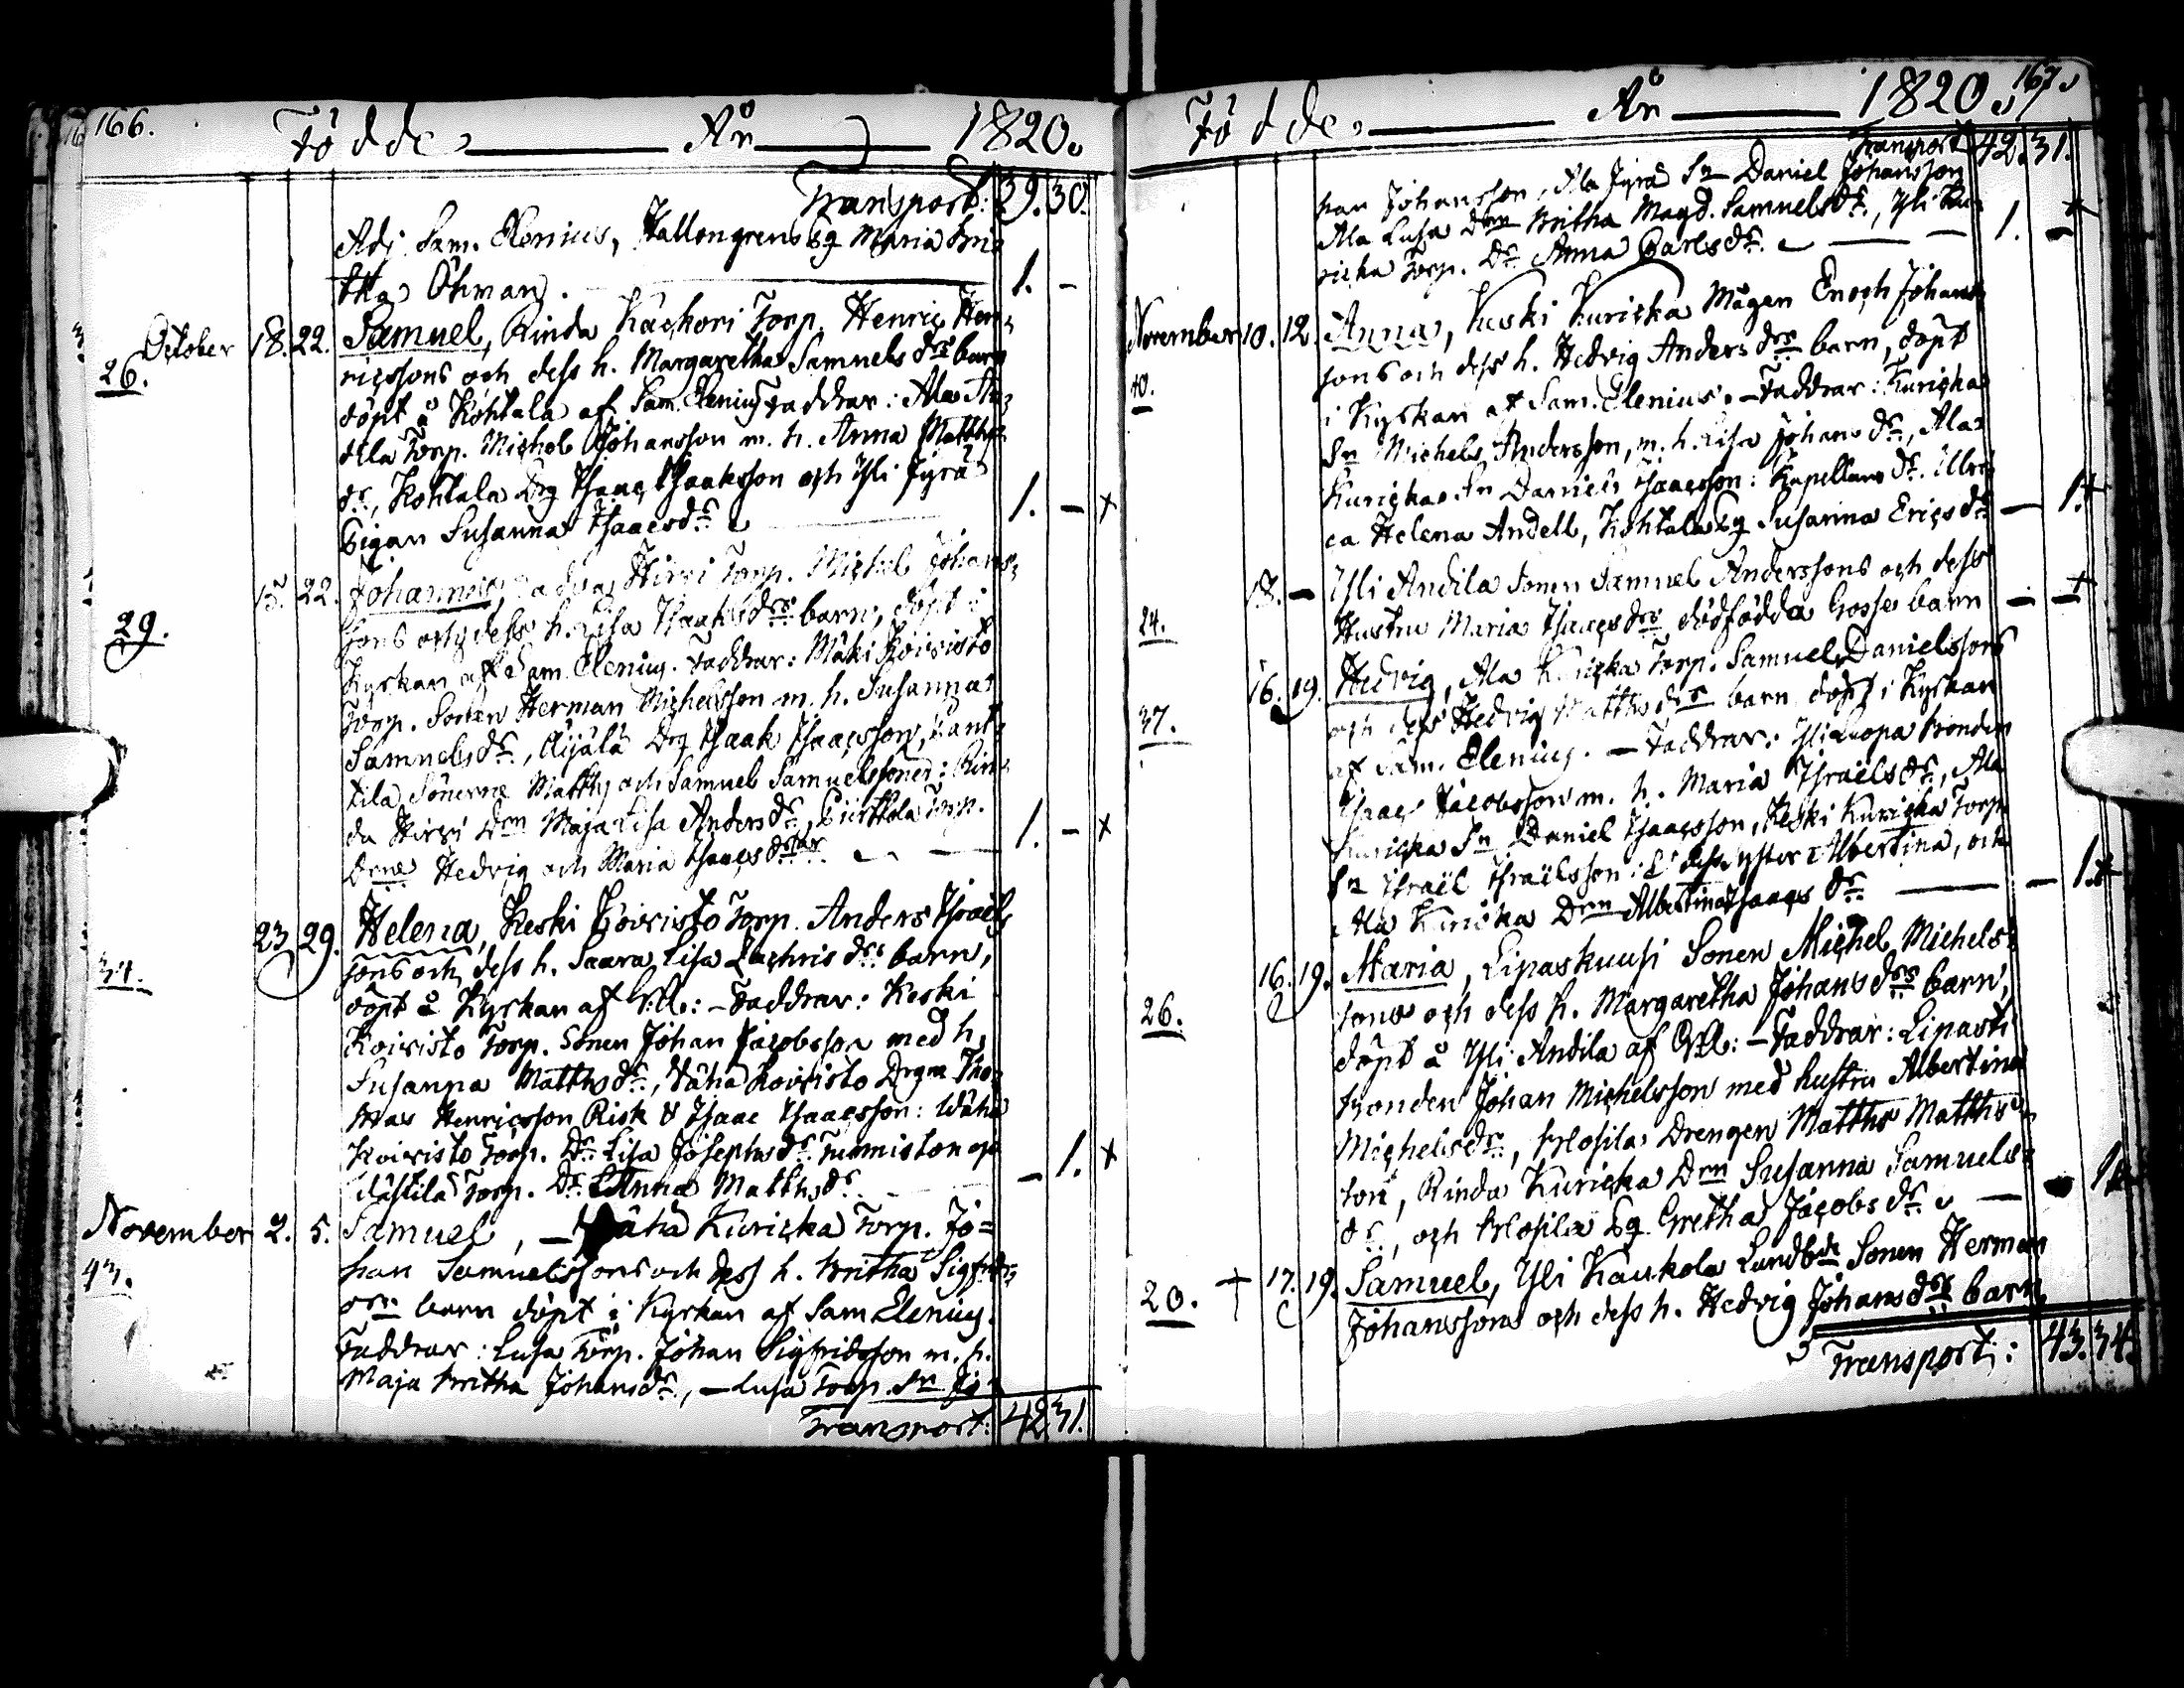 166.
Födde, År 1820.
Transport: 39. 30.
Adj. Sam. Elenius, Hallongrens Eg Maria Bri-
tha Öhman. 1. -
October 18. 22. Samuel, Rinda Käcköri Torp. Henric Hen-
26. ricssons och dess h. Margaretha Samuels drs barn
döpt å Kohtala af Sam. Elenius Faddrar: Ala An-
dila Torp. Michel Johansson m. h. Anna Matths
dr, Kohtala Drg Isaac Isaaksson och Yli Jyrä
Pigan Susanna Isaacsdr 1. - x
15. 22. Johannes, Hirvi Torp. Michel Johans-
29. sons och dess h. Lisa Isaaks drs barn, döpt i
Kyrkan af Sam Elenius. Faddrar: Mäki Koivisto
Torp. Sonen Herman Michelsson m. h. Susanna
Samuelsdr, Äijälä Drg Isaak Isaacsson, Pant-
tila Sönerne Matths och Samuel Samuelssöner: Rin-
da Hirvi Drn Maja Lisa Andersdr, Torp.
Drne Hedvig och Maria Isaacs drar 1. - x
23. 29. Helena, Keski Koivisto Torp. Anders Israels
34. sons och dess h. Saara Lisa Zachris drs barn,
döpt å Kyrkan af : - Faddrar: Keski
Koivisto Torp. Sonen Johan Jacobsson med h.
Susanna Matthsdr, Wäha Koivisto Drgne Tho-
mas Henricsson Risk & Isaac Isaacsson: Wäha
Koivisto Torp. Dr Lisa Josephsdr Tuomiston o
dästila Torp. Dr Anna Matthsdr - 1. x
November 2. 5. Samuel, - Wäha Kuricka Torp. Jo=
43. han Samuelssons och dess h. Britha Sigfrids
drs barn döpt i Kyrkan af Sam Elenius.
Faddrar: Lusa Torp. Johan Sigfridsson m. h.
Maja Britha Johansdr, - Lusa Torp. Sn Jo-
Transport: 42. 31.
167.
Födde, År 1820.
Transport 42. 31.
han Johansson, Ala Jyrä Sn Daniel Johansson
Ala Lusa Drn Britha Magd. Samuelsdr, Yli Ku-
ricka Torp. Dr Anna Carlsdr. 1. - +
November 10. 12. Anna, Keski Kuricka Mågen Enoch Johans-
40. sons och dess h. Hedvig Anders drs barn, döpt
i Kyrkan af Sam. Elenius. - Faddrar: Kuricka
Sn Michel Andersson, m. h. Lisa Johansdr, Ala
Kuricka Sn Daniel Isaacsson: Kapellans dr. Ulri-
ca Helena Andell, Kohtala Eg Susanna Ericsdr - 1. +
18. - Yli Andila Sonen Samuel Anderssons och dess
24. Hustru Maria Isaacs drs dödfödda Gosse barn - - +
16. 19. Hedvig, Ala Kuricka Torp. Samuel Danielssons
37. och dess Hedvig Matths drs barn döpt i Kyrkan
af Sam. Elenius. - Faddrar: Yli Luopa Bonden
Isaac Jacobsson m. h. Maria Israelsdr, Ala
Kuricka Sn Daniel Isaacsson, Keski Kuricka Torp
Sn Israël Israëlsson: & dess Syster Albertina, och
Ala Kuricka Drn Albertina Isaacs dr. - 1. +
16. 19. Maria, Lipaskuusi Sonen Michel Michels-
26. sons och dess h. Margaretha Johans drs barn,
döpt å Yli Andila af : - Faddrar: Lipasti
bonden Johan Michelsson med hustru Albertina
Michelsdr, Drengen Matths Matths-
son, Rinda Kuricka Drn Susanna Samuels-
dr, och Eg Gretha Jacobsdr. - 1.
20. + 17. 19. Samuel, Yli Kaukola Landbde Sonen Herman
Johanssons och dess h. Hedvig Johans drs barn,
Transport: 43. 34.